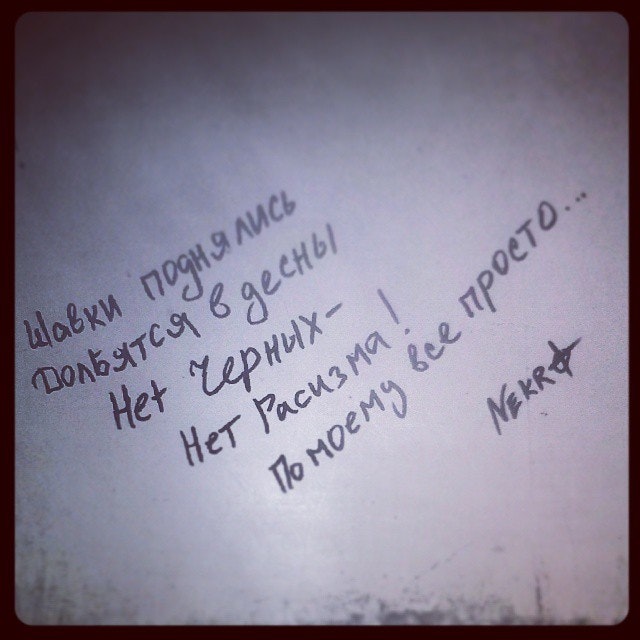 Шавки поднялись
Долбятся в десны
Нет Черных-
Нет Расизма!
Помоему все просто...
NEKRO